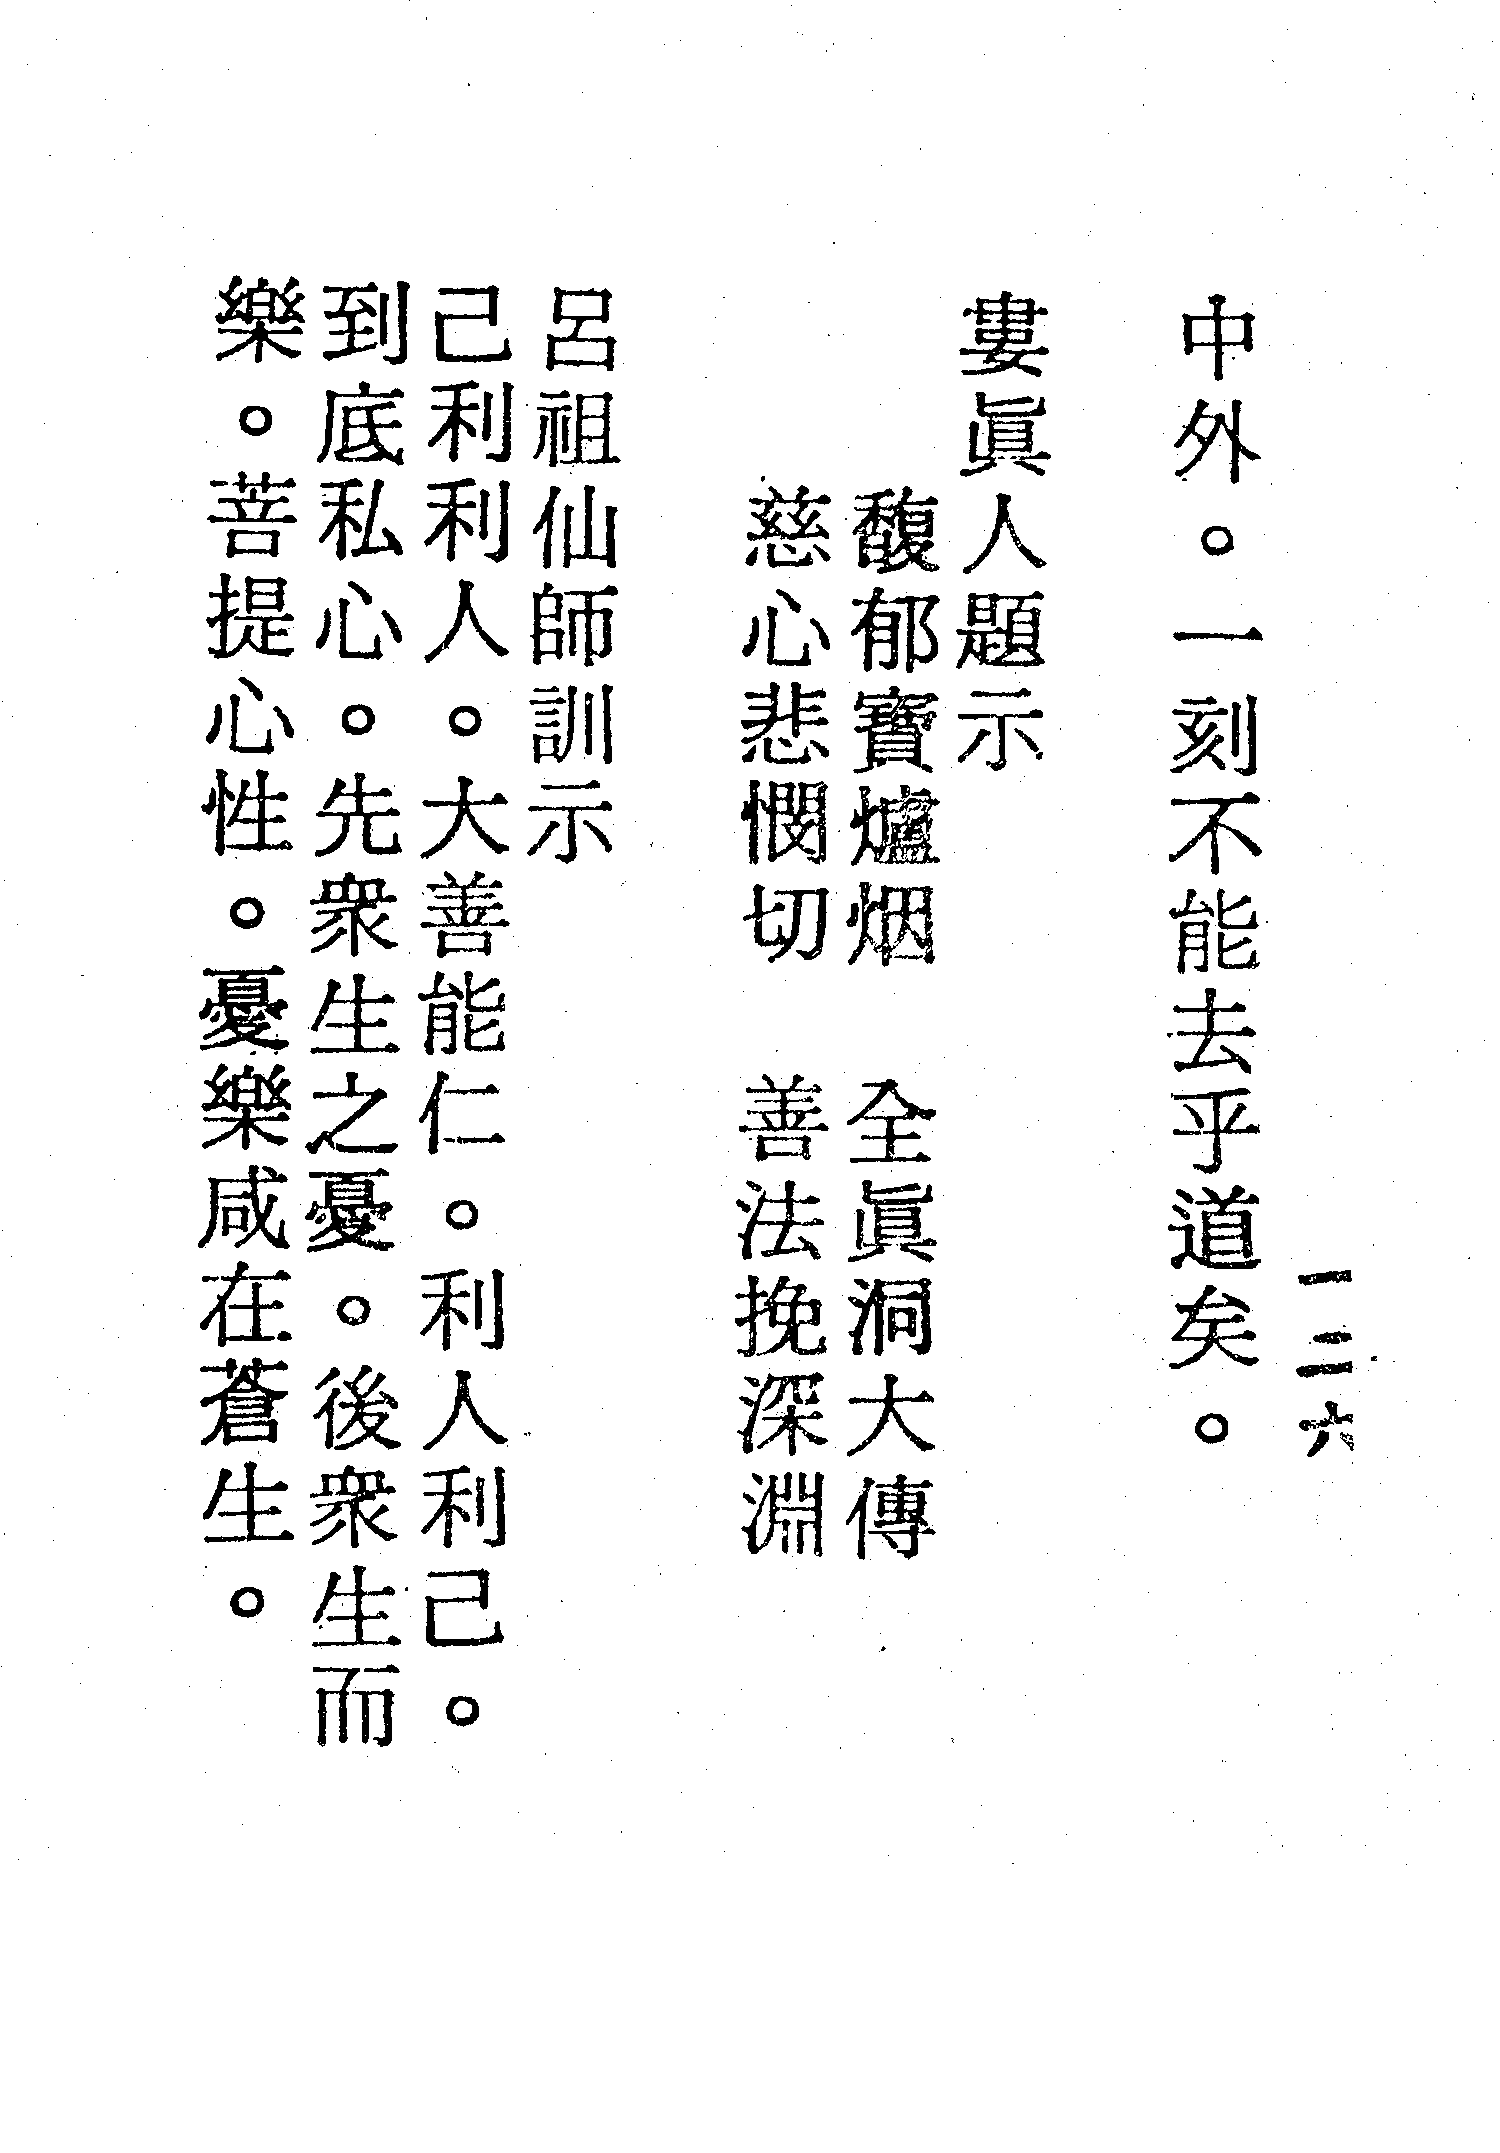 一二六
中外。一刻不能去乎道矣。
婁眞人題示
馥郁寶爐烟　全眞洞大傳
慈心悲憫切　善法挽深淵
呂祖仙師訓示
己利利人。大善能仁。利人利己。
到底私心。先衆生之憂。後衆生而
樂。菩提心性。憂樂咸在蒼生。